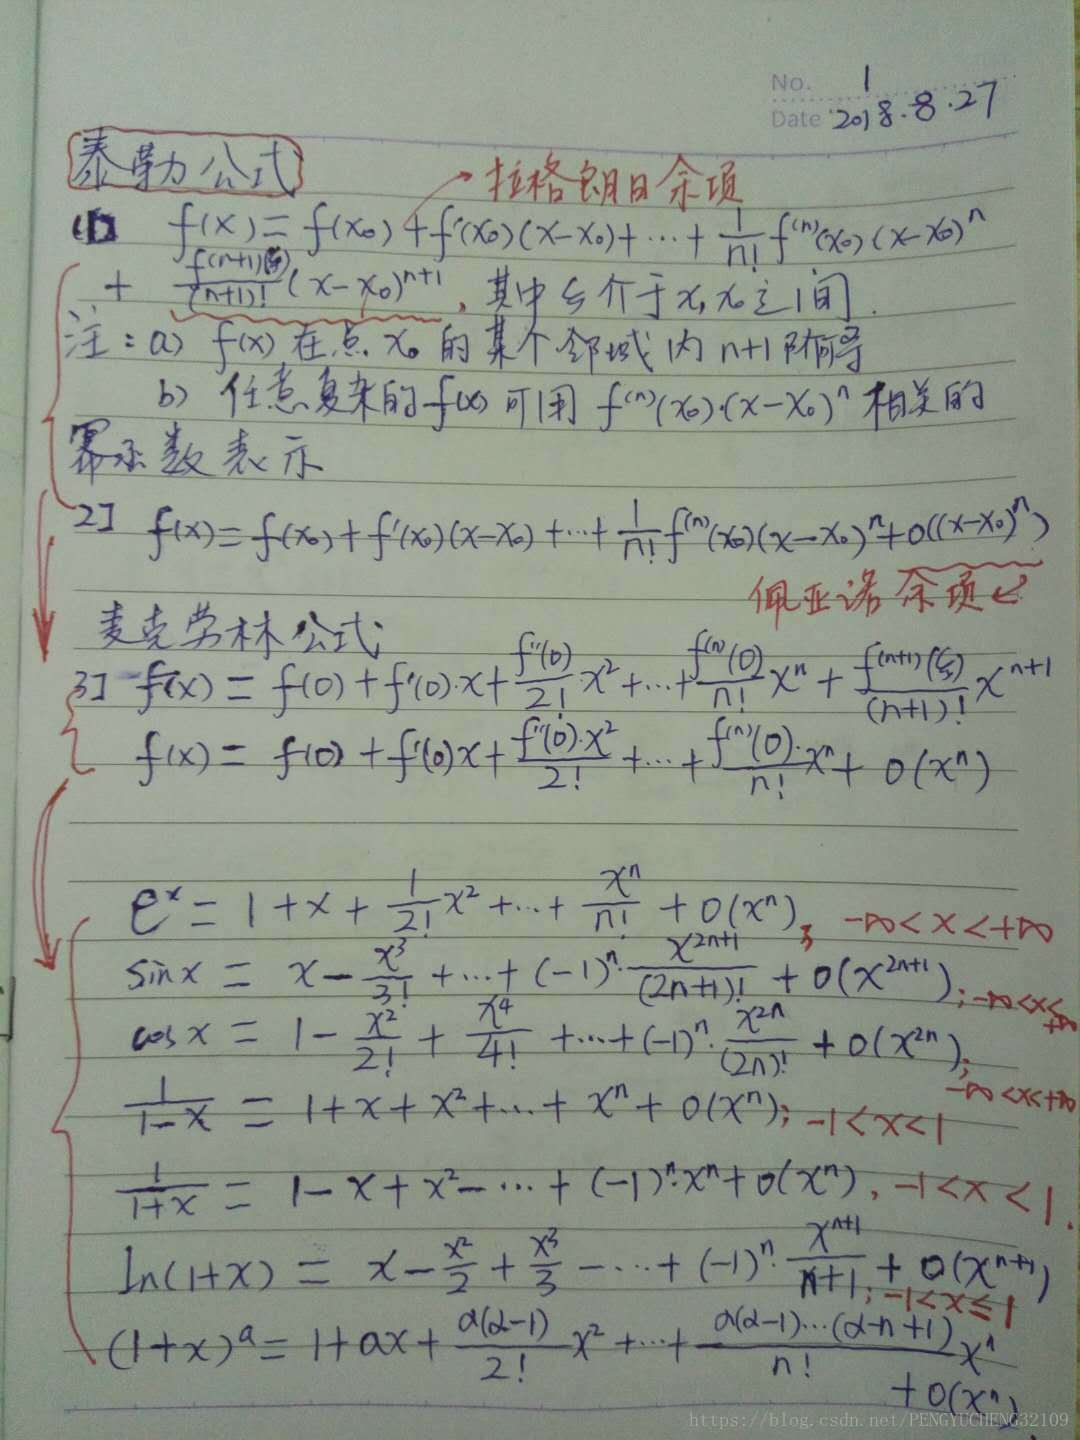 No. 1
Date 2018.8.27
泰勒公式
拉格朗日余项
(1) f(x) = f(x₀) + f'(x₀)(x-x₀) + ⋯ + 1/n! f⁽ⁿ⁾(x₀)(x-x₀)ⁿ
+ f⁽ⁿ⁺¹⁾(ξ)/(n+1)! (x-x₀)ⁿ⁺¹, 其中ξ介于x, x₀之间.
注: a) f(x) 在点 x₀ 的某个邻域内 n+1 阶可导
b) 任意复杂的 f(x) 可用 f⁽ⁿ⁾(x₀)·(x-x₀)ⁿ 相关的
幂函数表示
2] f(x) = f(x₀) + f'(x₀)(x-x₀) + ⋯ + 1/n! f⁽ⁿ⁾(x₀)(x-x₀)ⁿ + o((x-x₀)ⁿ)
佩亚诺余项
麦克劳林公式
3] f(x) = f(0) + f'(0)·x + f''(0)/2! x² + ⋯ + f⁽ⁿ⁾(0)/n! xⁿ + f⁽ⁿ⁺¹⁾(ξ)/(n+1)! xⁿ⁺¹
f(x) = f(0) + f'(0)x + f''(0)·x²/2! + ⋯ + f⁽ⁿ⁾(0)·/n! xⁿ + o(xⁿ)
eˣ = 1 + x + 1/2! x² + ⋯ + xⁿ/n! + o(xⁿ); -∞ < x < +∞
sinx = x - x³/3! + ⋯ + (-1)ⁿ· x²ⁿ⁺¹/(2n+1)! + o(x²ⁿ⁺¹); -∞ < x < +∞
cosx = 1 - x²/2! + x⁴/4! + ⋯ + (-1)ⁿ· x²ⁿ/(2n)! + o(x²ⁿ); -∞ < x < +∞
1/(1-x) = 1 + x + x² + ⋯ + xⁿ + o(xⁿ); -1 < x < 1
1/(1+x) = 1 - x + x² - ⋯ + (-1)ⁿ·xⁿ + o(xⁿ), -1 < x < 1.
ln(1+x) = x - x²/2 + x³/3 - ⋯ + (-1)ⁿ· xⁿ⁺¹/n+1 + o(xⁿ⁺¹); -1 < x ≤ 1
(1+x)ᵃ = 1 + ax + α(α-1)/2! x² + ⋯ + α(α-1)⋯(α-n+1)/n! xⁿ
+ o(xⁿ).
https://blog.csdn.net/PENGYUCHENG32109